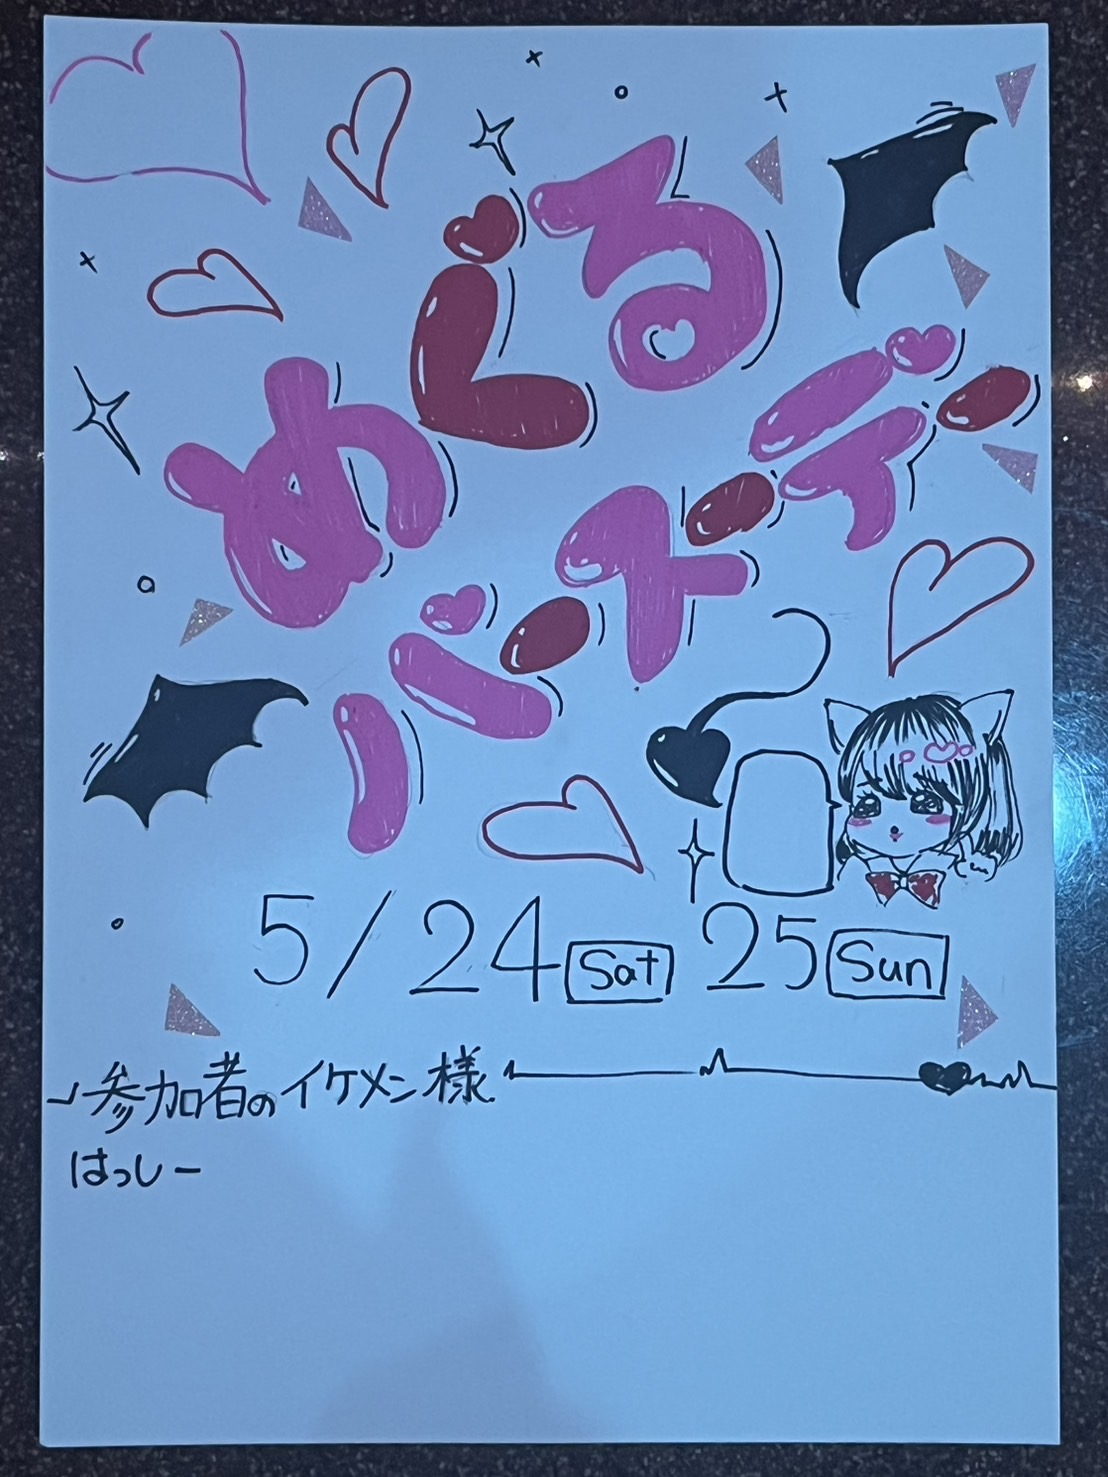 めぐる
バースデー
5/24 Sat 25 Sun
参加者のイケメン様
はっしー